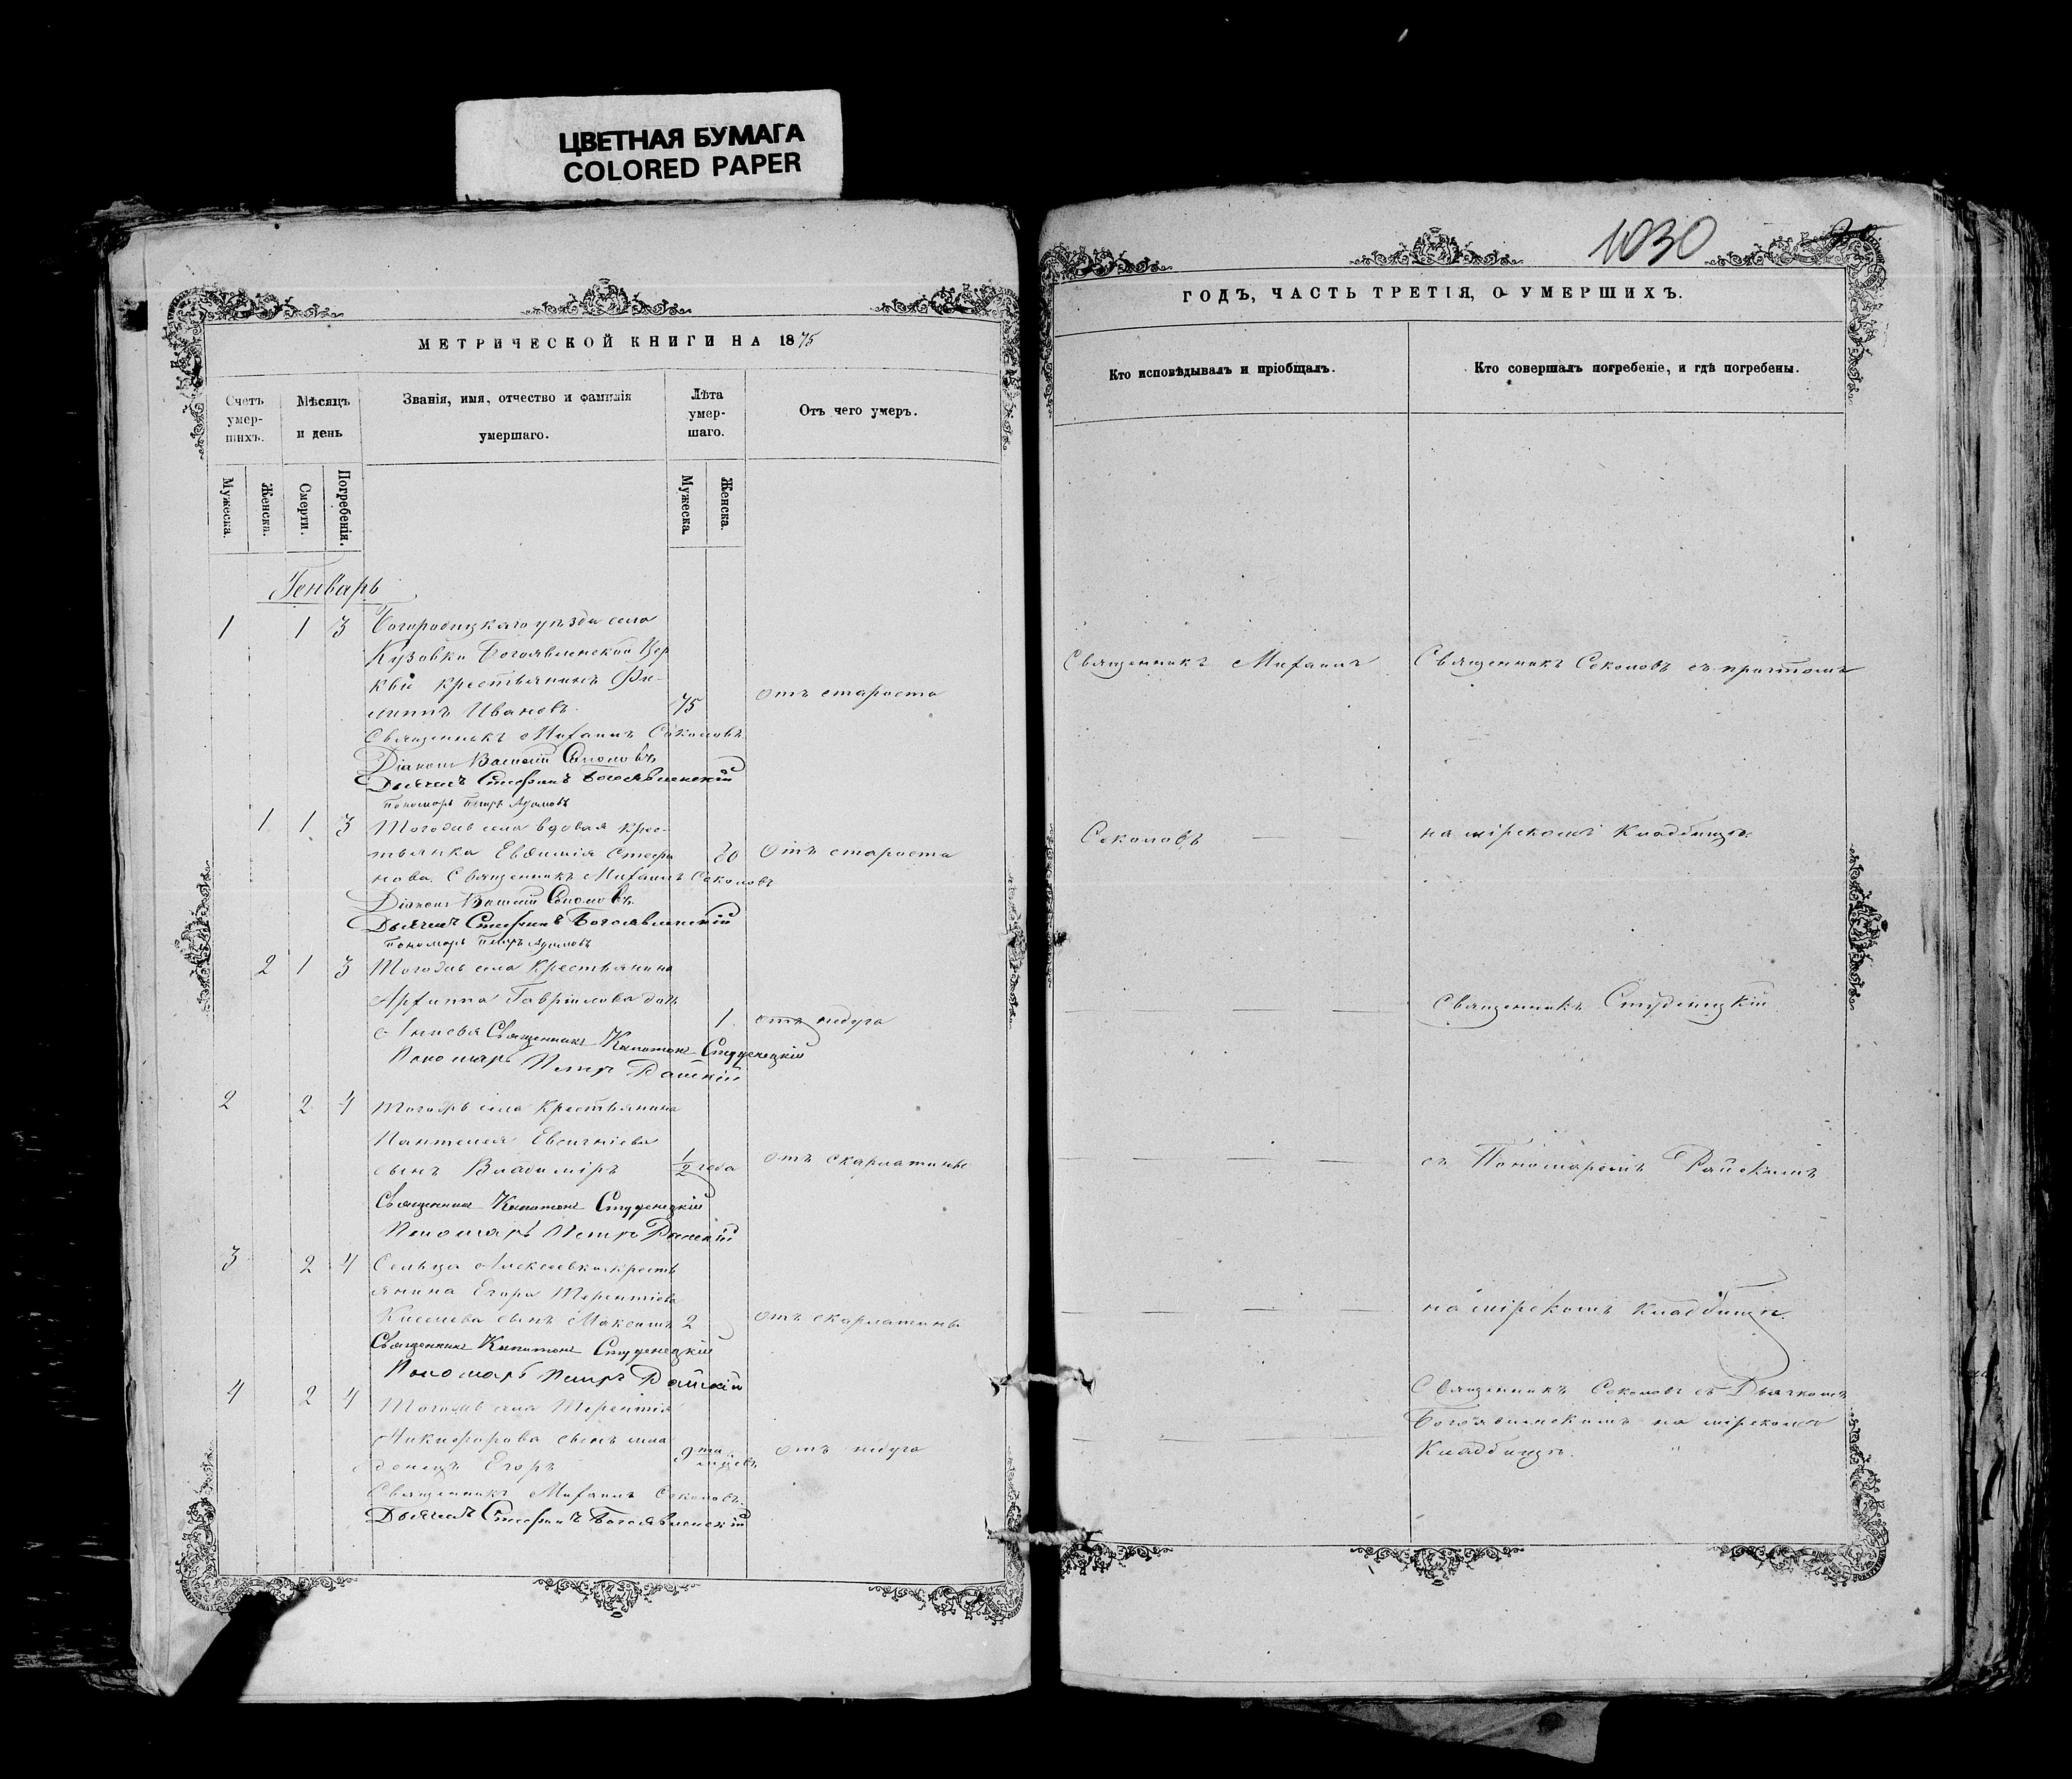 ЦВЕТНАЯ БУМАГА
COLORED PAPER
МЕТРИЧЕСКОЙ КНИГИ НА 1875
Счетъ умер-шихъ.
Мѣсяцъ и день
Званія, имя, отчество и фамилія умершаго.
Лѣта умер-шаго.
Отъ чего умеръ.
Мужеска.
Женска.
Смерти.
Погребенія.
Мужеска
Женска.
Генварь
1 1 3 Богородицкаго уѣзда села
Кузовки Богоявленской Цер
кви крестьянинъ Фи-
липпъ Ивановъ. 75 отъ старости
Священникъ Михаилъ Соколовъ
Діаконъ Василій Соколовъ
Дьячекъ Стефанъ Богоявленскій
Пономарь Петръ Адамовъ
1 1 3 Тогоже села вдовая крес-
тьянка Евдокія Стефа
нова. Священникъ Михаилъ Соколовъ 80 Отъ старости
Діаконъ Василій Соколовъ
Дьячекъ Стефанъ Богоявленскій
Пономарь Петръ Адамовъ
2 1 3 Тогоже села крестьянина
Архиппа Гавріилова дочь
Священникъ Капитонъ Студенецкій 1 отъ недуга
Пономарь Петръ Райскій
2 2 4 Тогоже села крестьянина
Пантелея Евсигніева
сынъ Владиміръ 1/2 года отъ скарлатины
Священникъ Капитонъ Студенецкій
Пономарь Петръ Райскій
3 2 4 Сельца Алексѣевки крестъ
янина Егора Терентіева
Киселева сынъ Максимъ 2 отъ скарлатины
Священникъ Капитонъ Студенецкій
Пономарь Петръ Райскій
4 2 4 Тогожъ села Терентія
Никифорова сынъ мла
денецъ Егоръ 9 отъ недуга
Священникъ Михаилъ Соколовъ.
Дьячекъ Стефанъ Богоявленскій
1030
ГОДЪ, ЧАСТЬ ТРЕТІЯ, О УМЕРШИХЪ.
Кто исповѣдывалъ и пріобщалъ.
Кто совершалъ погребеніе, и гдѣ погребены.
Священникъ Михаилъ
Священникъ Соколовъ съ причтомъ
Соколовъ
на мірскомъ кладбищѣ.
Священникъ Студенецкій
съ Пономаремъ Райскимъ
на мірскомъ кладбищѣ.
Священникъ Соколовъ съ Дьячкомъ
Богоявленскимъ на мірскомъ
Кладбищѣ.